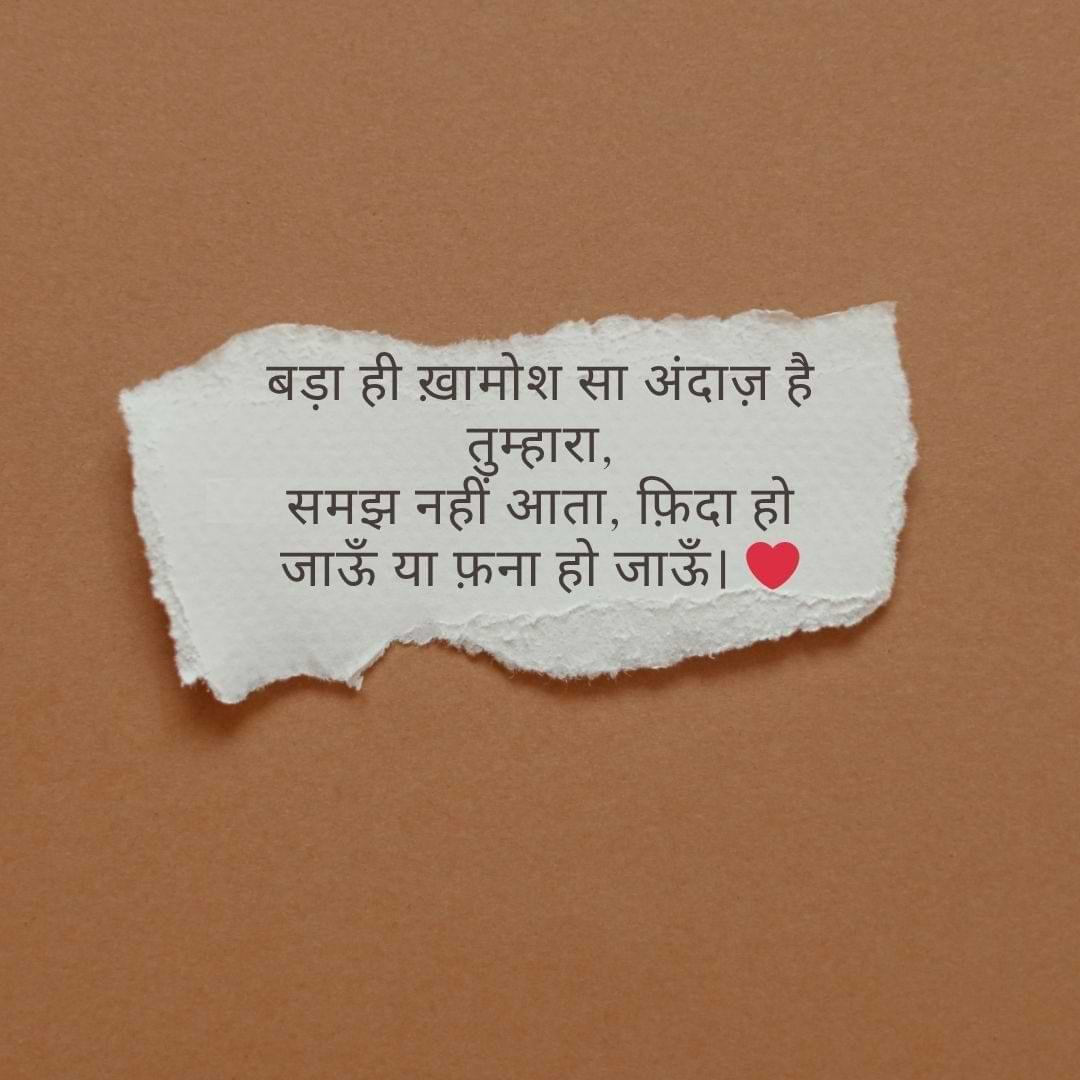 बड़ा ही ख़ामोश सा अंदाज़ है
तुम्हारा,
समझ नहीं आता, फ़िदा हो
जाऊँ या फ़ना हो जाऊँ। ❤️